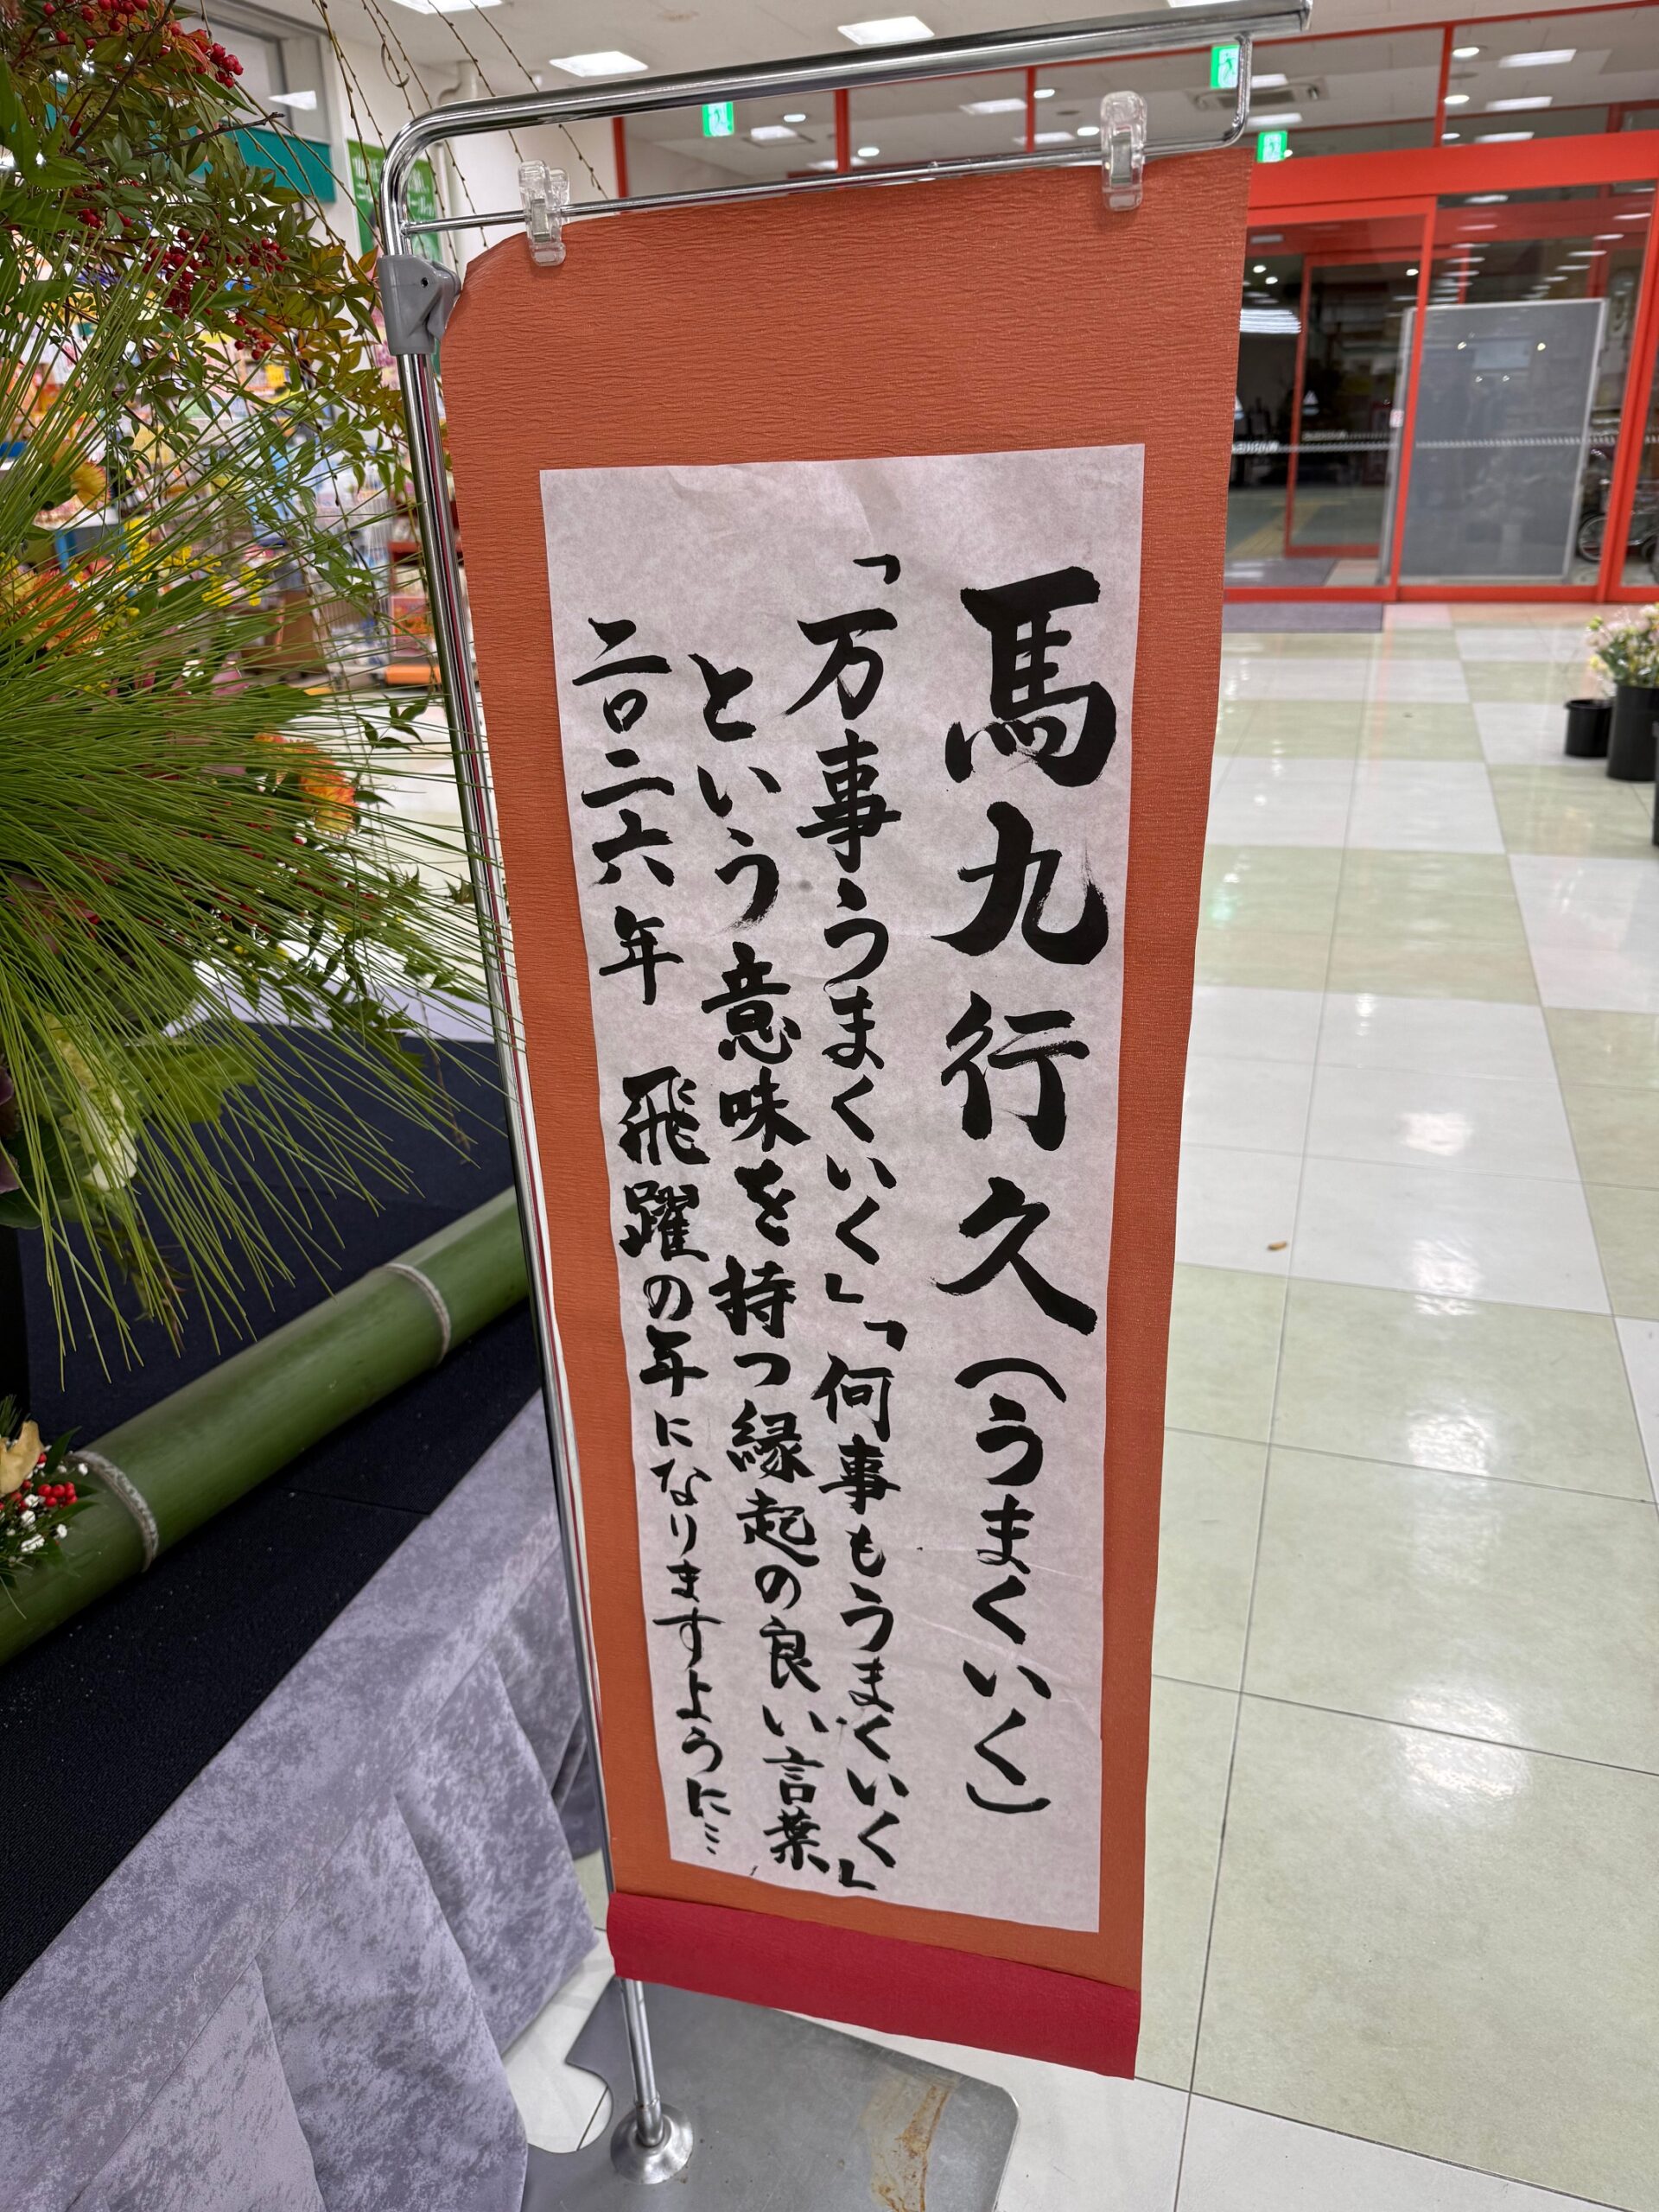 馬九行久（うまくいく）
「万事うまくいく」「何事もうまくいく」
という意味を持つ縁起の良い言葉
二〇二六年 飛躍の年になりますように…